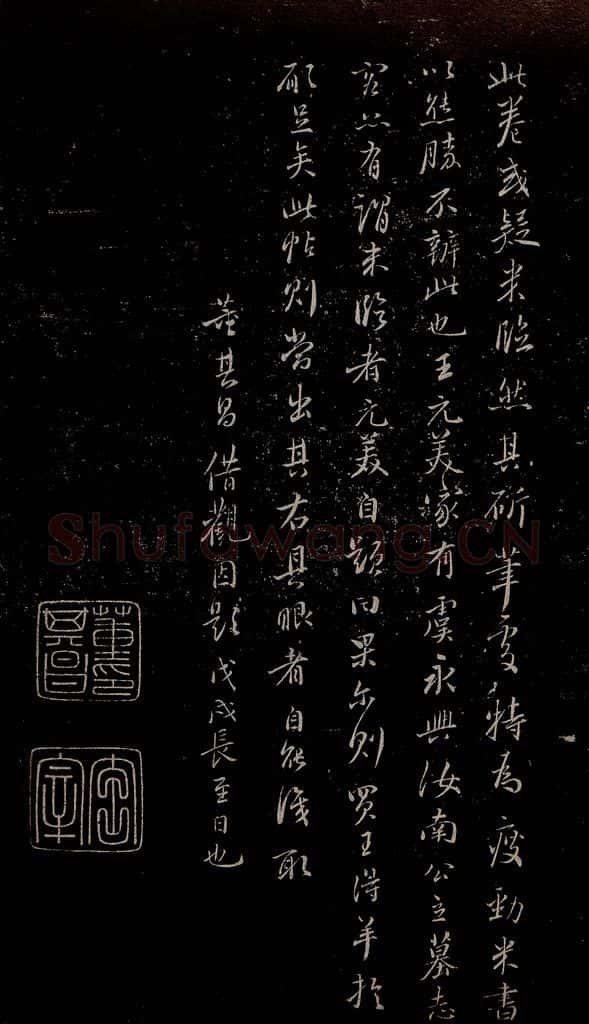 此卷或疑米臨然其斫筆處特為瘦勁米書
以態勝不辦此也王元美家有虞永興汝南公主墓志
亦有謂米臨者元美自題曰果尓則買王得羊於
願足矣此帖則當出其右具眼者自能識取
董其昌借觀因題戊戌長至日也
董其昌印
玄宰
Shufawang.CN